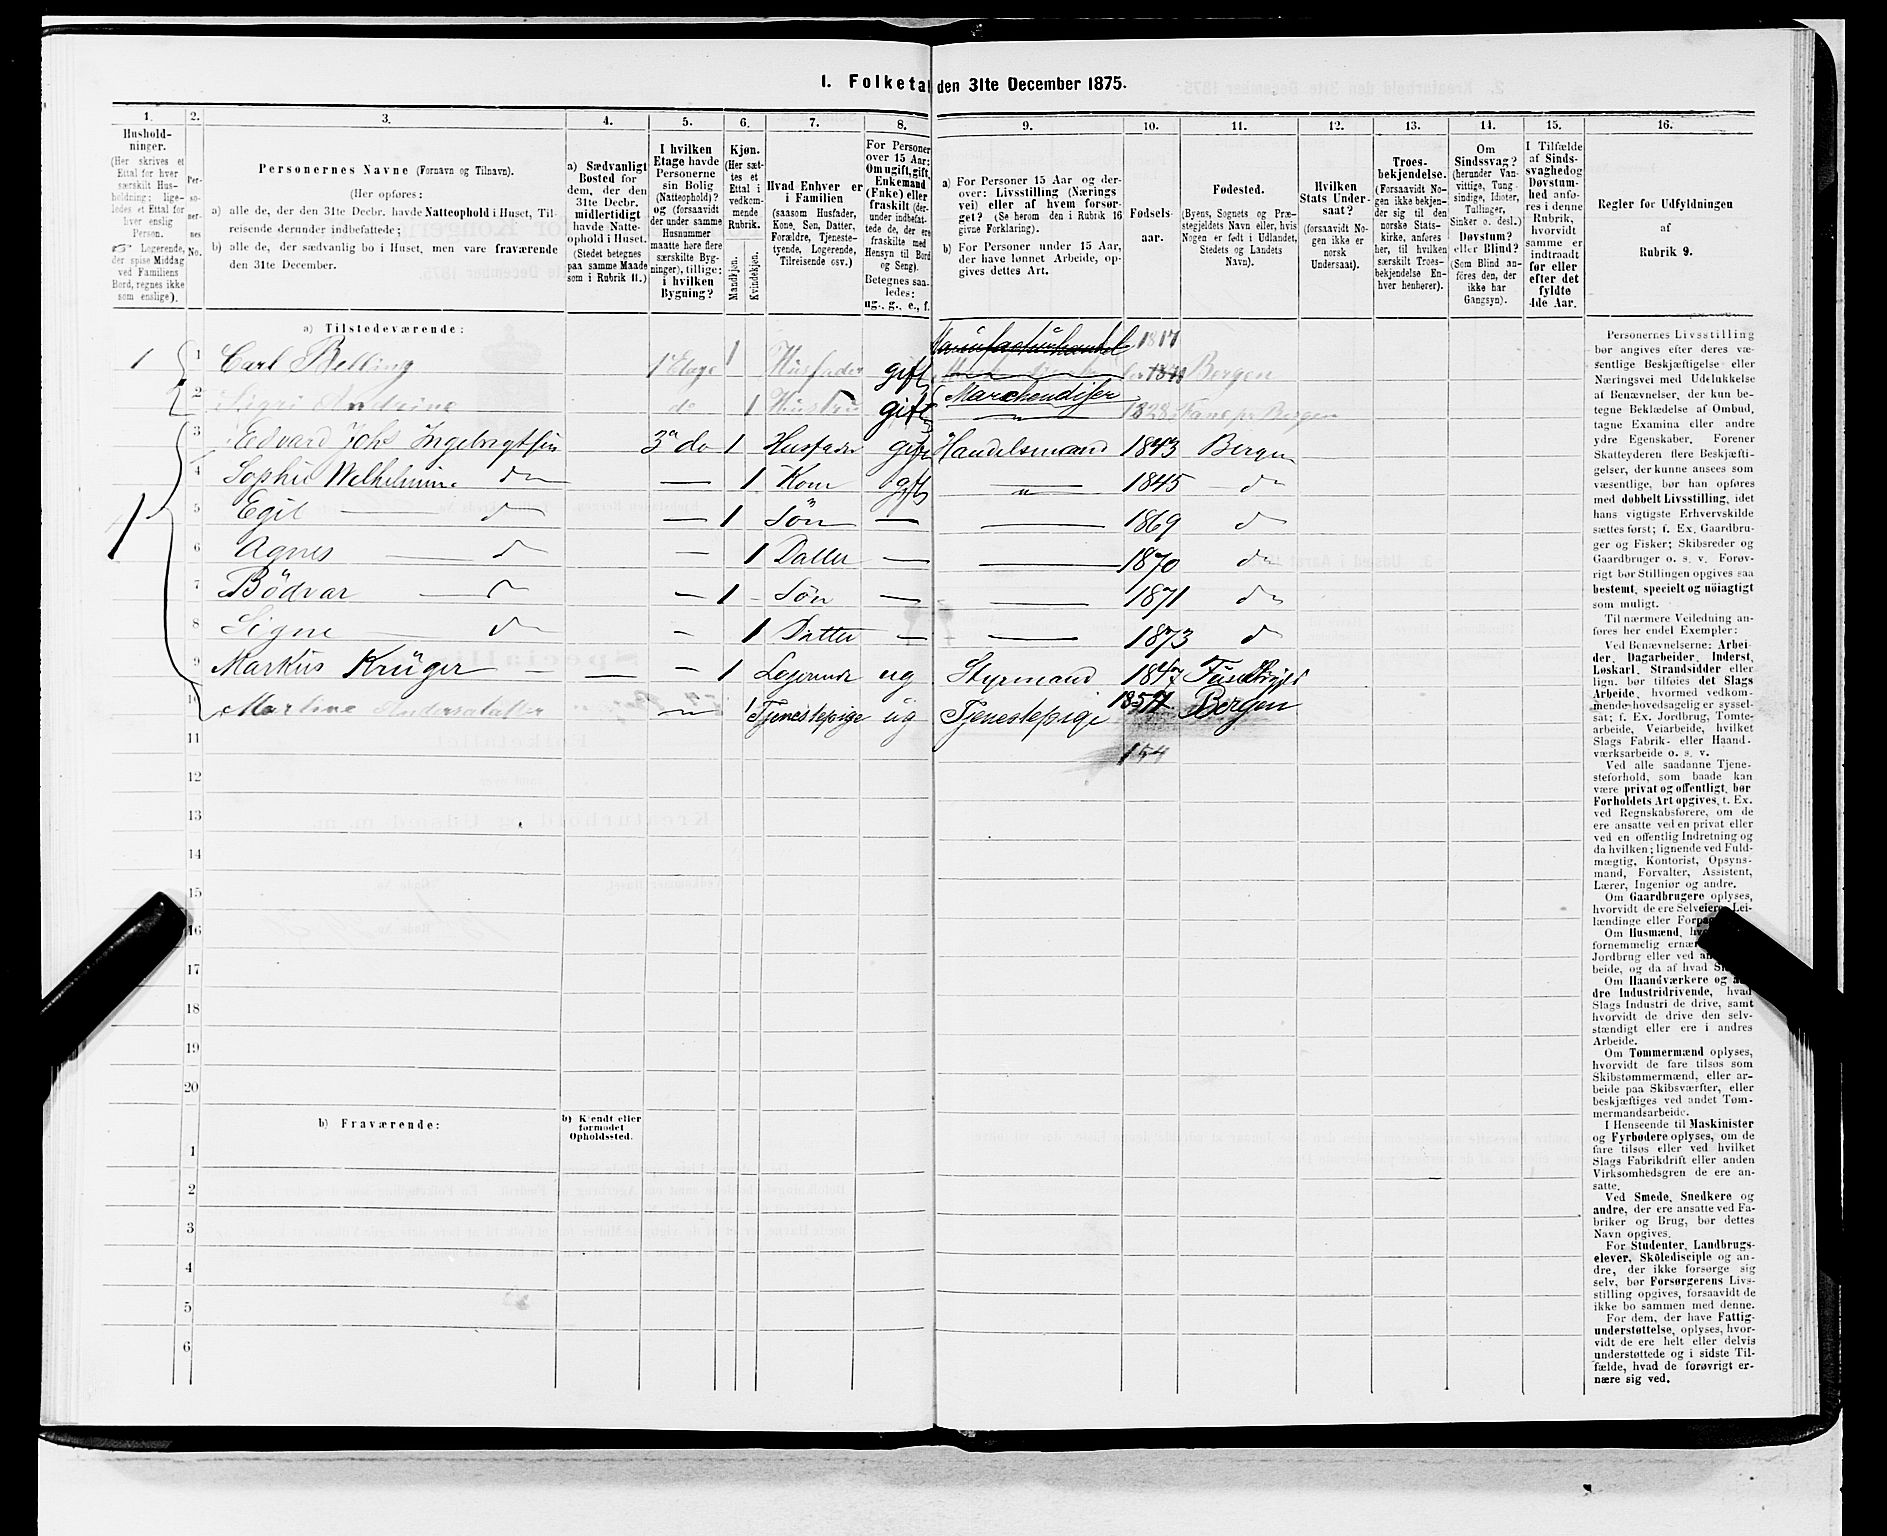 1. Folketal den 31te December 1875.
1.
Hushold-
ninger.
(Her skrives et
Ettal for hver
særskilt Hus-
holdning; lige-
ledes et Ettal for
hver enslig
Person.
Logerende,
der spise Middag
ved Familiens
Bord, regnes ikke
som enslige).
2.
Per-
so-
ner-
nes
No.
3.
Personernes Navne (Fornavn og Tilnavn).
(Her opføres:
a) alle de, der den 31te Decbr. havde Natteophold i Huset, Til-
reisende derunder indbefattede;
b) alle de, der sædvanlig bo i Huset, men vare fraværende
den 31te December.
4.
a) Sædvanligt
Bosted for
dem, der den
31te Decbr.
midlertidigt
havde Natte-
ophold i Huset.
(Stedet betegnes
paa samme Maade
som i Rubrik 11.)
5.
I hvilken
Etage havde
Personerne
sin Bolig
(Natteophold)?
og (forsaavidt
der under samme
Husnummer
maatte høre flere
særskilte Byg-
ninger), tillige:
i hvilken
Bygning?
6.
Kjøn.
(Her sæt-
tes et
Ettal i
vedkom-
mende
Rubrik.
Mandkjøn.
Kvindekjøn.
7.
Hvad Enhver er
i Familien
(saasom Husfader,
Kone, Søn, Datter,
Forældre, Tjeneste-
tyende, Logerende,
Tilreisende osv.)
8.
For Personer
over 15 Aar:
Om ugift, gift,
Enkemand
(Enke) eller
fraskilt (der-
under indbefat-
tede de, der ere
fraskilte med
Hensyn til Bord
og Seng).
Betegnes saa-
ledes:
ug., g., e., f.
9.
a) For Personer 15 Aar og der-
over: Livsstilling (Nærings
vei) eller af hvem forsør-
get? (Se herom den i Rubrik 16
givne Forklaring).
b) For Personer under 15 Aar,
der have lønnet Arbeide, op-
gives dettes Art.
10.
Fødsels-
aar.
11.
Fødested.
(Byens, Sognets og Præ-
stegjeldets Navn eller, hvis
Nogen er født i Udlandet,
Stedets og Landets
Navn).
12.
Hvilken
Stats Under-
saat?
(forsaavidt No-
gen ikke er
norsk
Undersaat).
13.
Troes-
bekjendelse.
(Forsaavidt No-
gen ikke bekjen-
der sig til den
norske Stats-
kirke, anføres
her, til hvilken
særskilt Troes-
bekjendelse En-
hver henhører).
14.
Om
Sindssvag?
(herunder Van-
vittige, Tung-
sindige, Idioter,
Tullinger,
Sinker o. desl.)
Døvstum?
eller Blind?
(Som Blind an-
føres den, der
ikke har
Gangsyn).
15.
I Tilfælde
af Sinds-
svaghed og
Døvstum-
hed anfø-
res i denne
Rubrik,
hvorvidt
samme er
indtraadt
før eller
efter det
fyldte
4de Aar.
16.
Regler for Udfyldningen
af
Rubrik 9.
a) Tilstedeværende:
1 1 Carl Belling 1 Etage 1 Husfader gift Manufacturhandel 1817 Bergen
2 Sigri Andrine do 1 Hustru gift Marchendiser 1828 Fane pr Bergen
3 Edvard Johs Ingebrigtsen 3 do 1 Husfader gift Handelsmand 1843 Bergen
1 4 Sophie Wilhelmine do — 1 Kone gift " 1845 do
5 Egil — do — 1 Søn — — 1869 do
6 Agnes — do — 1 Datter — — 1870 do
7 Bödvar — do — 1 Søn — — 1871 do
8 Signe — do — 1 Datter — — 1873 do
9 Markus Krüger — — 1 Logerende ug Styrmand 1847
10 Martine Andersdatter 1 Tjenestepige ug Tjenestepige 1854 Bergen
11 154
12
13
14
15
16
17
18
19
20
b) Fraværende:
b) Kjendt eller
formodet
Opholdssted.
1
2
3
4
5
6
Personernes Livsstilling
bør angives efter deres væ-
sentlige Beskjæftigelse eller
Næringsvei med Udelukkelse
af Benævnelser, der kun be-
tegne Beklædelse af Ombud,
tagne Examina eller andre
ydre Egenskaber. Forener
Skatteyderen flere Beskjæfti-
gelser, der kunne ansees som
væsentlige, bør han opføres
med dobbelt Livsstilling, idet
hans vigtigste Erhvervskilde
sættes først; f. Ex. Gaardbru-
ger og Fisker; Skibsreder og
Gaardbruger o. s. v. Forøv-
rigt bør Stillingen opgives saa
bestemt, specielt og nöiagtigt
som muligt.
Til nærmere Veiledning an-
føres her endel Exempler:
Ved Benævnelserne: Arbei-
der, Dagarbeider, Inderst,
Løskarl, Strandsidder eller
lign. bør tilføies det Slags
Arbeide, hvormed vedkom-
mende hovedsagelig er syssel-
sat; f. Ex. Jordbrug, Tomte-
arbeide, Veiarbeide, hvilket
Slags Fabrik- eller Haand-
værksarbeide o. s. v.
Ved alle saadanne Tjene-
steforhold, som baade kan
være privat og offentligt, bør
Forholdets Art opgives, t. Ex.
ved Regnskabsførere, om de
ere ansatte ved en privat eller
ved en offentlig Indretning og
da hvilken; lignende ved Fuld-
mægtig, Kontorist, Opsyns-
mand, Forvalter, Assistent,
Lærer, Ingeniør og andre.
Om Gaardbrugere oplyses,
hvorvidt de ere Selveiere, Lei-
lændinge eller
Om Husmænd,
fornemmelig
Jordbrug eller ved
beide, og da af hvad
Om Haandværkere og
dre Industridrivende, hvad
Slags Industri de drive, samt
hvorvidt de drive den selv-
stændigt eller ere i andres
Arbeide.
Om Tømmermænd oplyses,
hvorvidt de fare tilsøs som
Skibstømmermænd, eller ar-
beide paa Skibsværfter, eller
beskjæftiges ved andet Tøm-
mermandsarbeide.
I Henseende til Maskinister
og Fyrbødere oplyses, om de
fare tilsøs eller ved hvilket
Slags Fabrikdrift eller anden
Virksomhedsgren de ere an-
satte.
Ved Smede, Snedkere og
andre, der ere ansatte ved Fa-
briker og Brug, bør dettes
Navn opgives.
For Studenter, Landbrugs-
elever, Skoledisciple og an-
dre, der ikke forsørge sig
selv, bør Forsørgerens Livs-
stilling opgives, forsaavidt de
ikke bo sammen med denne.
For dem, der have Fattig-
understøttelse, oplyses, hvor-
vidt de ere helt eller delvis
understøttede og i sidste Til-
fælde, hvad de forøvrigt er-
nære sig ved.